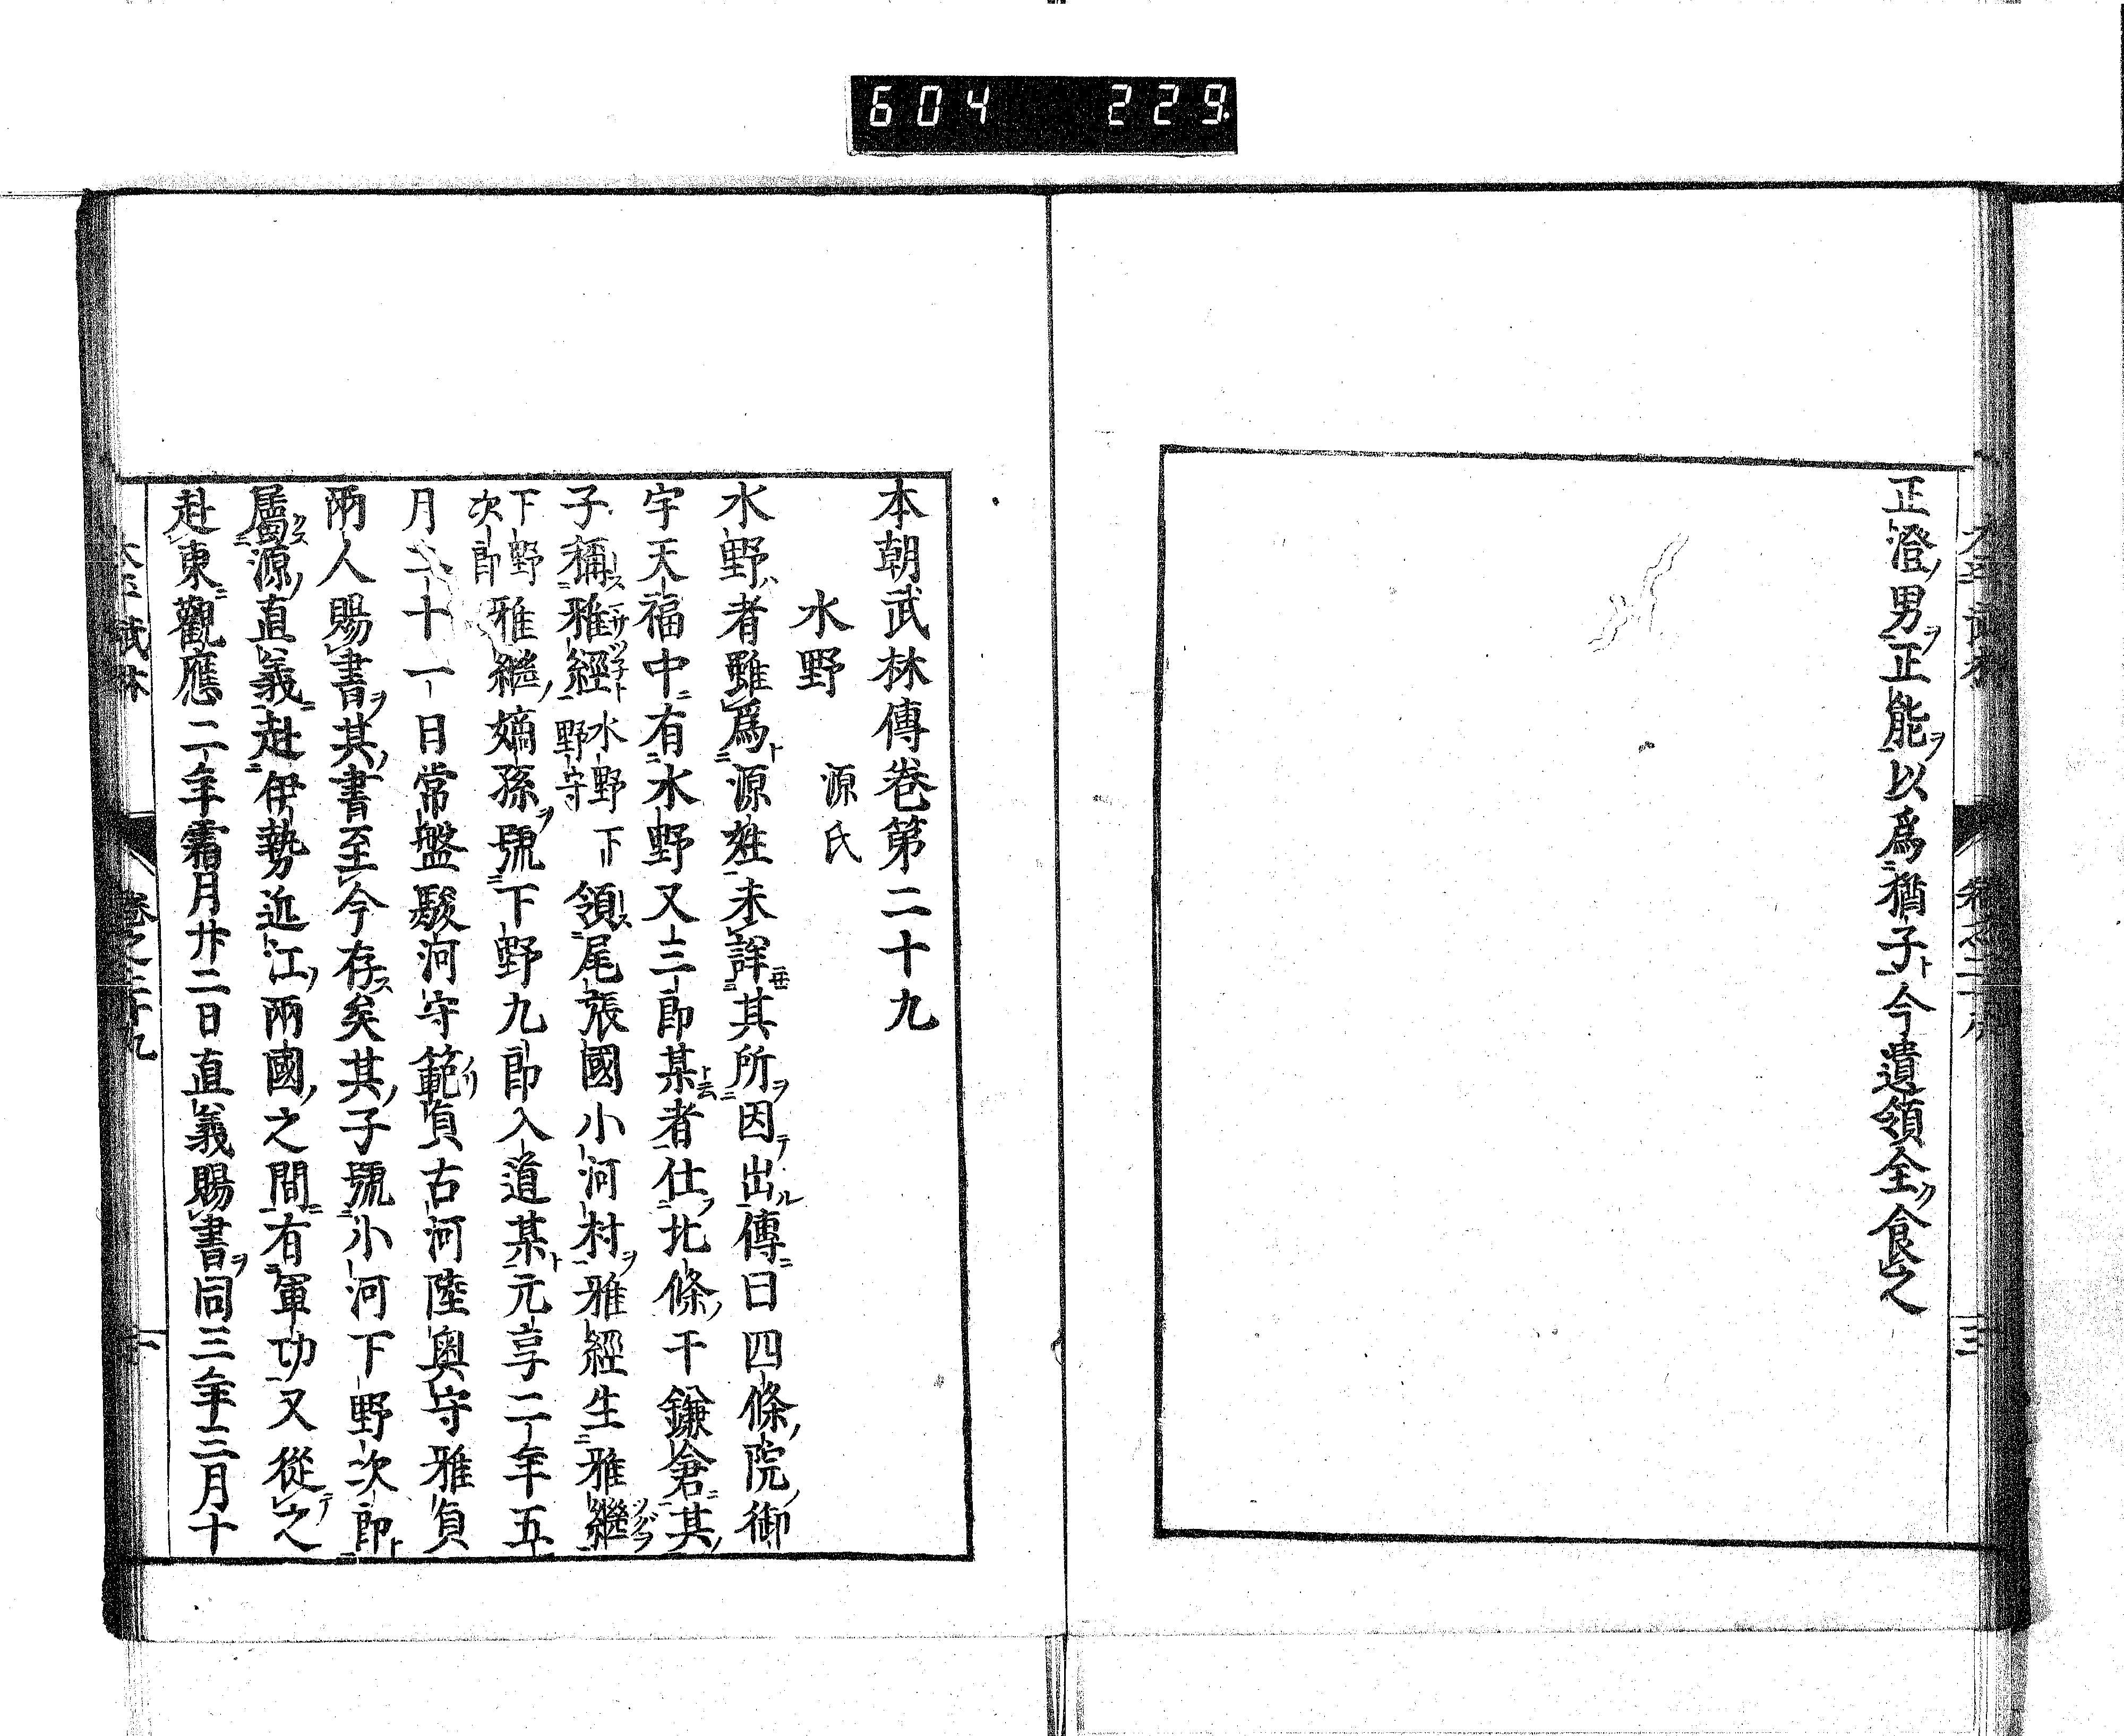 604 229
正澄男正能以爲猶子今遺領全食之
本朝武林傳卷第二十九
水野 源氏
水野者雖爲源姓未詳其所因出傳曰四條院御
宇天福中有水野又三郎某者仕北條于鎌倉其
子稱雅經水野下野守領尾張國小河村雅經生雅繼
下野次郎雅繼嫡孫號下野九郎入道某元享二年五
月二十一日常盤駿河守範貞古河陸奧守雅貞
兩人賜書其書至今存矣其子號小河下野次郎
屬源直義赴伊勢近江兩國之間有軍功又從之
赴東觀應二年霜月廿二日直義賜書同三年三月十